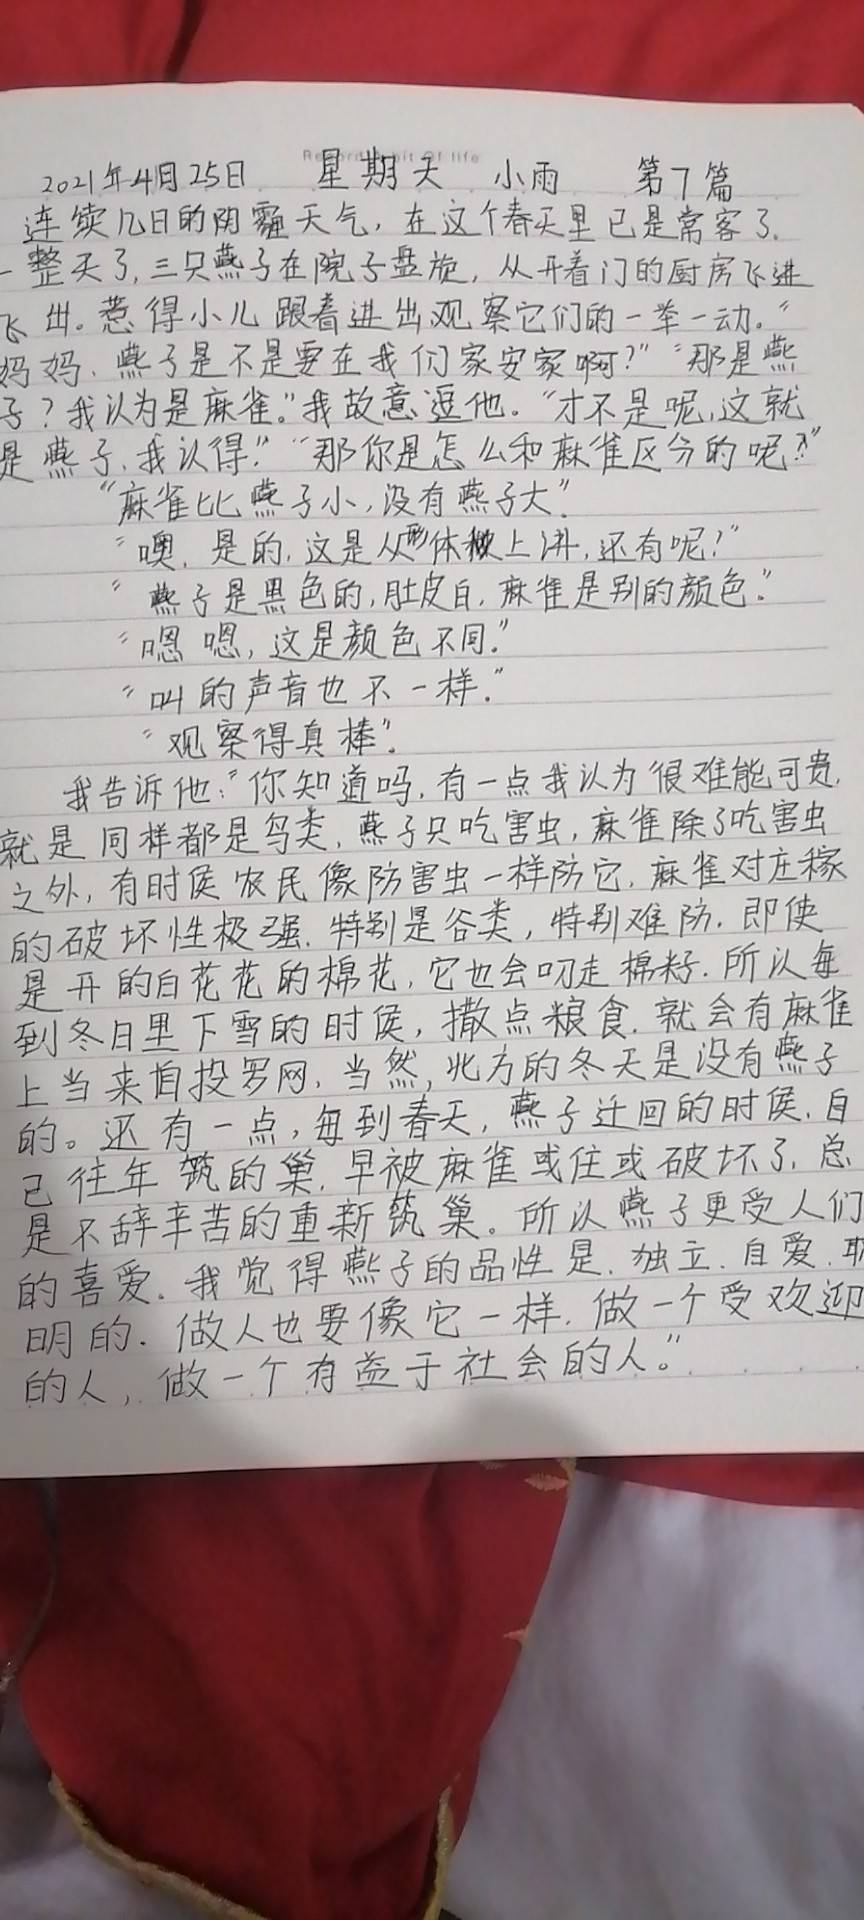 2021年4月25日 星期天 小雨 第7篇
连续几日的阴霾天气，在这个春天里已是常客了.
一整天了,三只燕子在院子盘旋，从开着门的厨房飞进
飞出。惹得小儿跟着进出观察它们的一举一动。“
妈妈、燕子是不是要在我们家安家啊?”“那是燕
子?我认为是麻雀。”我故意逗他。“才不是呢,这就
是燕子、我认得.”“那你是怎么和麻雀区分的呢?”
“麻雀比燕子小,没有燕子大”.
“噢,是的,这是从形体上讲,还有呢?”
“燕子是黑色的,肚皮白,麻雀是别的颜色.”
“嗯嗯,这是颜色不同.”
“叫的声音也不一样.”
“观察得真棒”.
我告诉他:“你知道吗,有一点我认为很难能可贵,
就是同样都是鸟类,燕子只吃害虫,麻雀除了吃害虫
之外,有时候农民像防害虫一样防它,麻雀对庄稼
的破坏性极强.特别是谷类,特别难防.即使
是开的白花花的棉花,它也会叨走棉籽.所认每
到冬日里下雪的时侯,撒点粮食.就会有麻雀
上当来自投罗网,当然,北方的冬天是没有燕子
的。还有一点,每到春天,燕子迁回的时侯,自
己往年筑的巢,早被麻雀或住或破坏了,总
是不辞辛苦的重新筑巢。所以燕子更受人们
的喜爱.我觉得燕子的品性是.独立.自爱.
明的.做人也要像它一样.做一个受欢迎
的人,做一个有益于社会的人。”